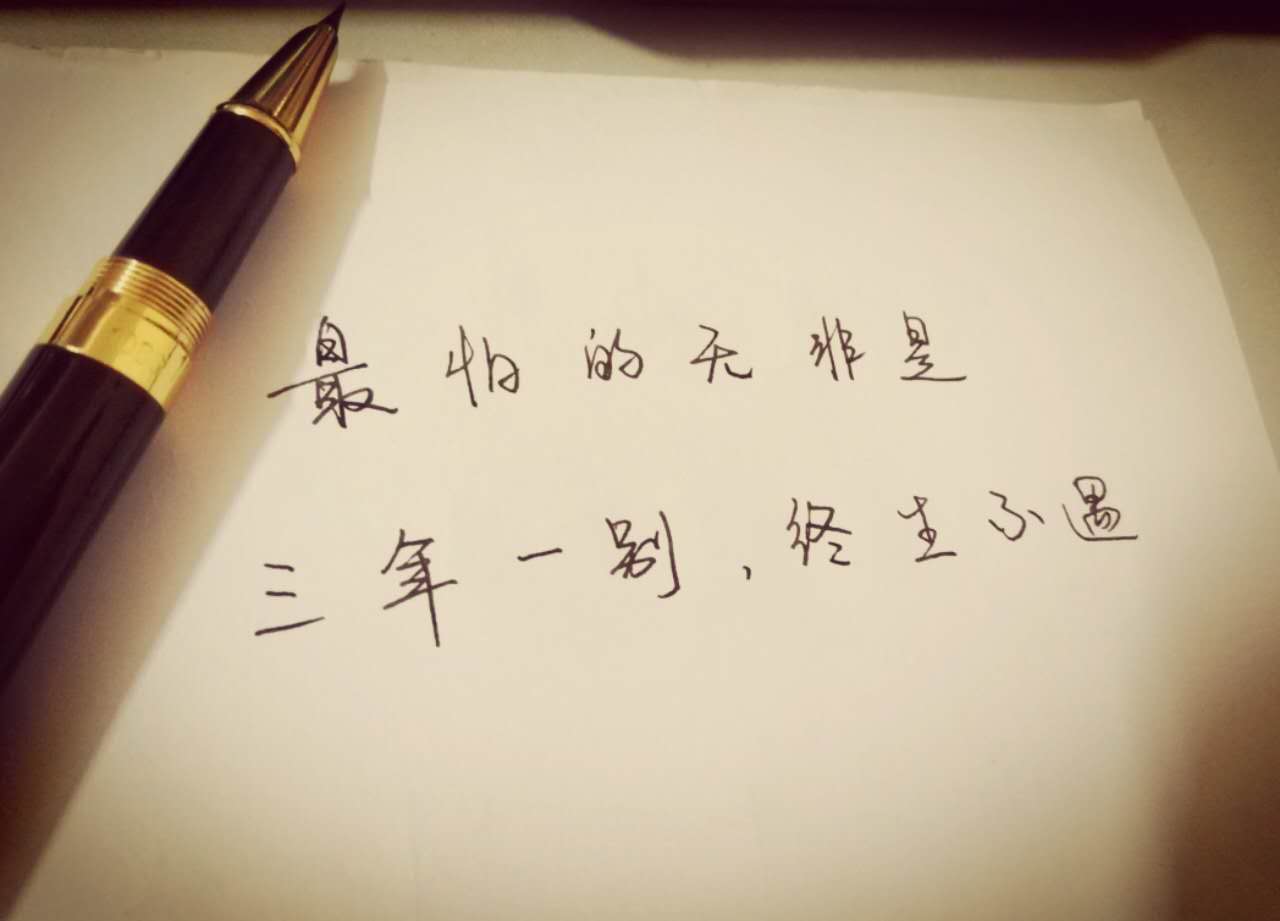 最怕的无非是
三年一别，终生不遇